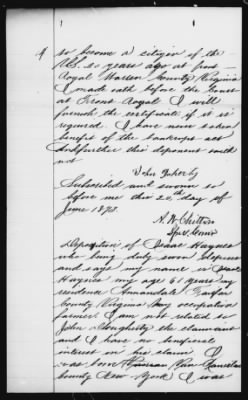 4
to become a citizen of the
U.S. 20 years ago at Front
Royal Warren County Virginia
I made oath before the Court
at Front Royal I will
furnish the certificate if it is
required. I have never taken
benefit of the bankrupt act
And further this deponent saith
not
John Doherty
Subscribed and sworn to
before me this 20th day of
June 1873.
A. W. Chilton
Spe'l Com'r
Deposition of Isaac Haynes
who being duly sworn deposes
and says my name is Isaac
Haynes my age 61 years my
residence Fairfax
County Virginia my occupation
farmer I am not related to
John Dougherty the claimant
and I have no beneficial
interest in his claim I
was born
County New York I was